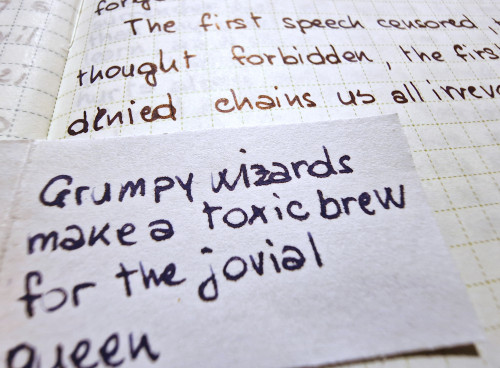 The first speech censored
thought forbidden, the
denied chains us all
Grumpy wizards
make a toxic brew
for the jovial
queen